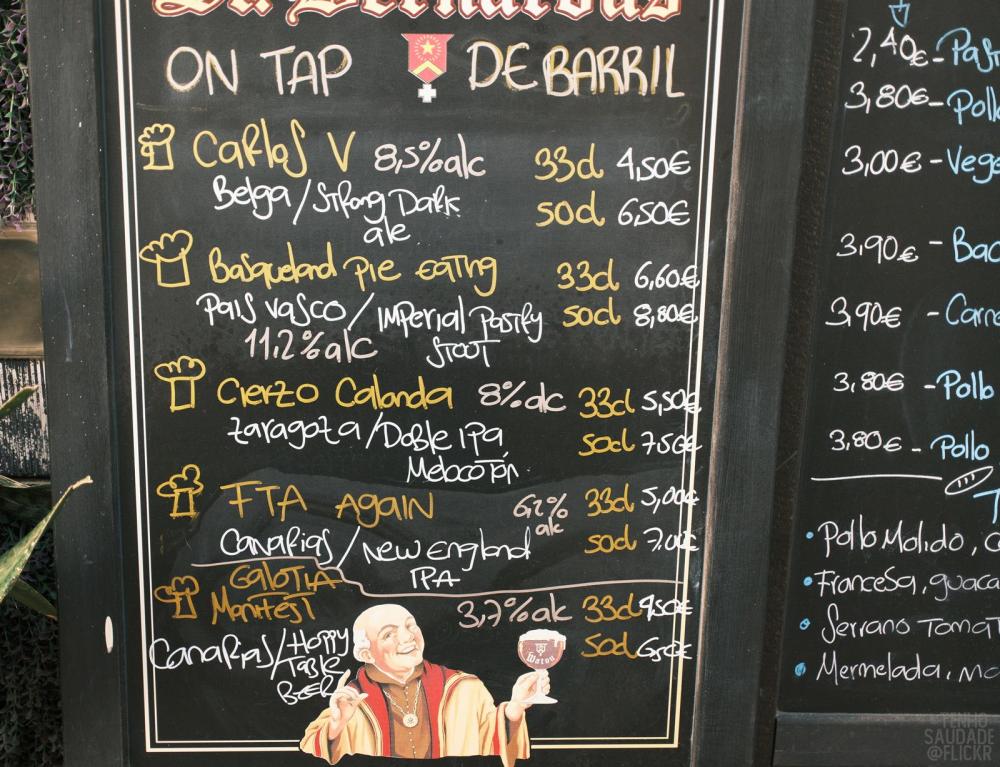 St. Bernardus
ON TAP DE BARRIL
Carlos V 8,5%alc 33cl 4,50€
Belga/Strong Dark 50cl 6,50€
ale
Basqueland Pie eating 33cl 6,60€
Pais Vasco/Imperial Pastry 50cl 8,80€
11,2%alc Stout
Cierzo Calanda 8%alc 33cl 5,50€
Zaragoza/Doble IPA 50cl 7,50€
Melocotón
FTA Again 6,2% 33cl 5,00€
alc
Canarias/New England 50cl 7,00€
IPA
Galotia
Manifest 3,7%alc 33cl 4,50€
Canarias/Hoppy 50cl 6,50€
Table
Beer
Watou
2,40€-
3,80€-Pollo
3,00€-
3,90€-
3,90€-
3,80€-Pollo
3,80€-Pollo
Pollo Molido,
Francesa,
Serrano
Mermelada,
TENHO
SAUDADE
@FLICKR